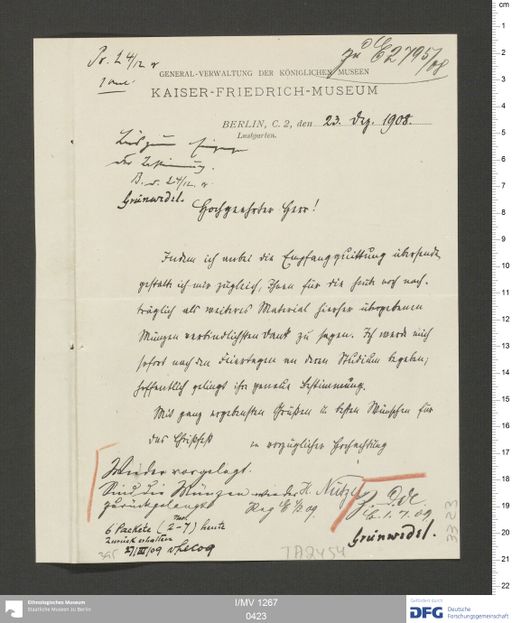 Pr. 24/12 08
1 Anl.
zu E 2795/08
GENERAL-VERWALTUNG DER KÖNIGLICHEN MUSEEN
KAISER-FRIEDRICH-MUSEUM
BERLIN, C. 2, den 23. Dez. 1908.
Lustgarten.
B. d. 24/12. 08
Grünwedel.
Hochgeehrter Herr!
Indem ich anbei die Empfangsquittung übersende,
gestatte ich mir zugleich, Ihnen für die heute noch nach-
träglich als weiteres Material hierher übergebenen
Münzen verbindlichsten Dank zu sagen. Ich werde mich
sofort nach den Feiertagen an deren Studium begeben;
hoffentlich gelingt ihre genaue Bestimmung.
Mit ganz ergebensten Grüßen u. besten Wünschen für
das Christfest
in vorzüglicher Hochachtung
H. Nützel
Wieder vorgelegt.
Sind die Münzen wieder
zurückgelangt
6 Packete (2-7) heute
zurück erhalten
27/III/09 v Lecoq
Grünwedel.
395
TA 2454
3323
cm
1
2
3
4
5
6
7
8
9
10
11
12
13
14
15
16
17
18
19
20
21
22
Ethnologisches Museum
Staatliche Museen zu Berlin
I/MV 1267
0423
Gefördert durch
DFG Deutsche
Forschungsgemeinschaft